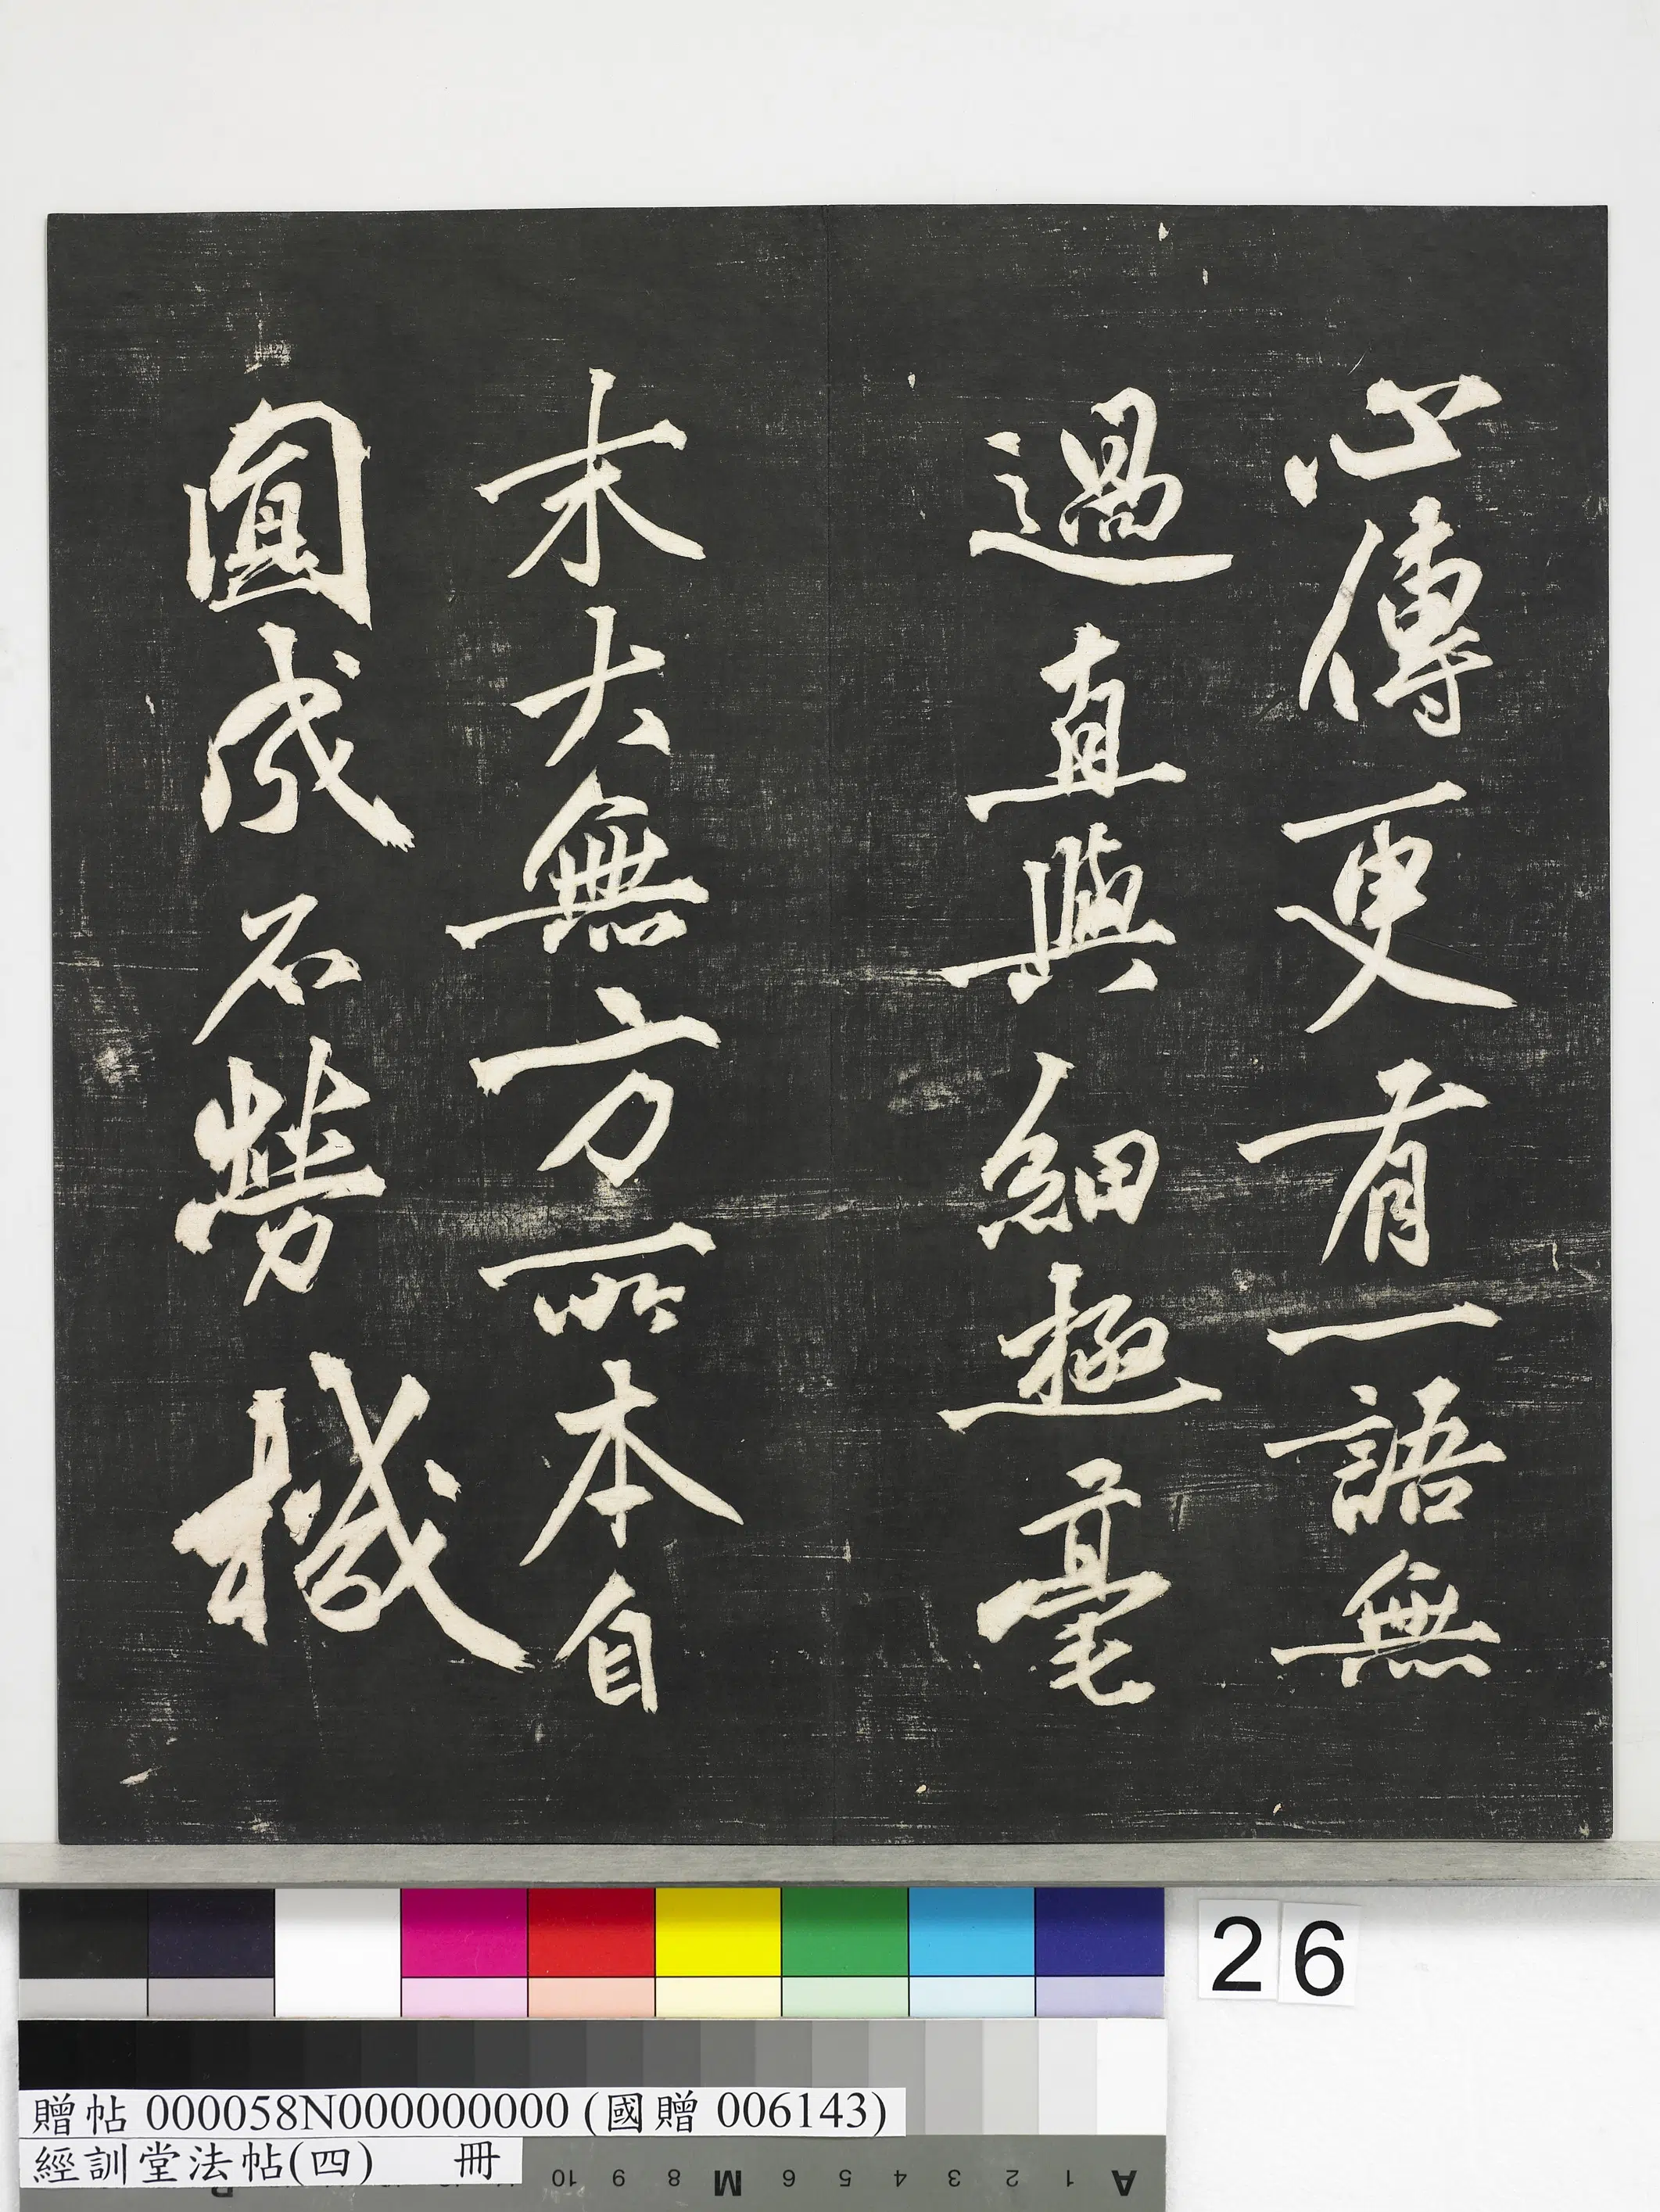 心傳更有一語無
過直與細極毫
末大無方所本自
圓成不勞機
26
贈帖 000058N000000000 (國贈 006143)
經訓堂法帖(四) 冊
A 1 2 3 4 5 6 M 8 9 10